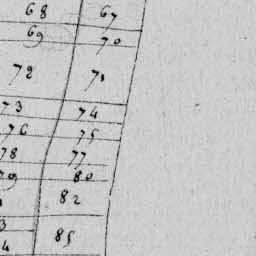 68 67
69 70
72 71
73 74
76 75
78 77
79 80
82
3
4 85